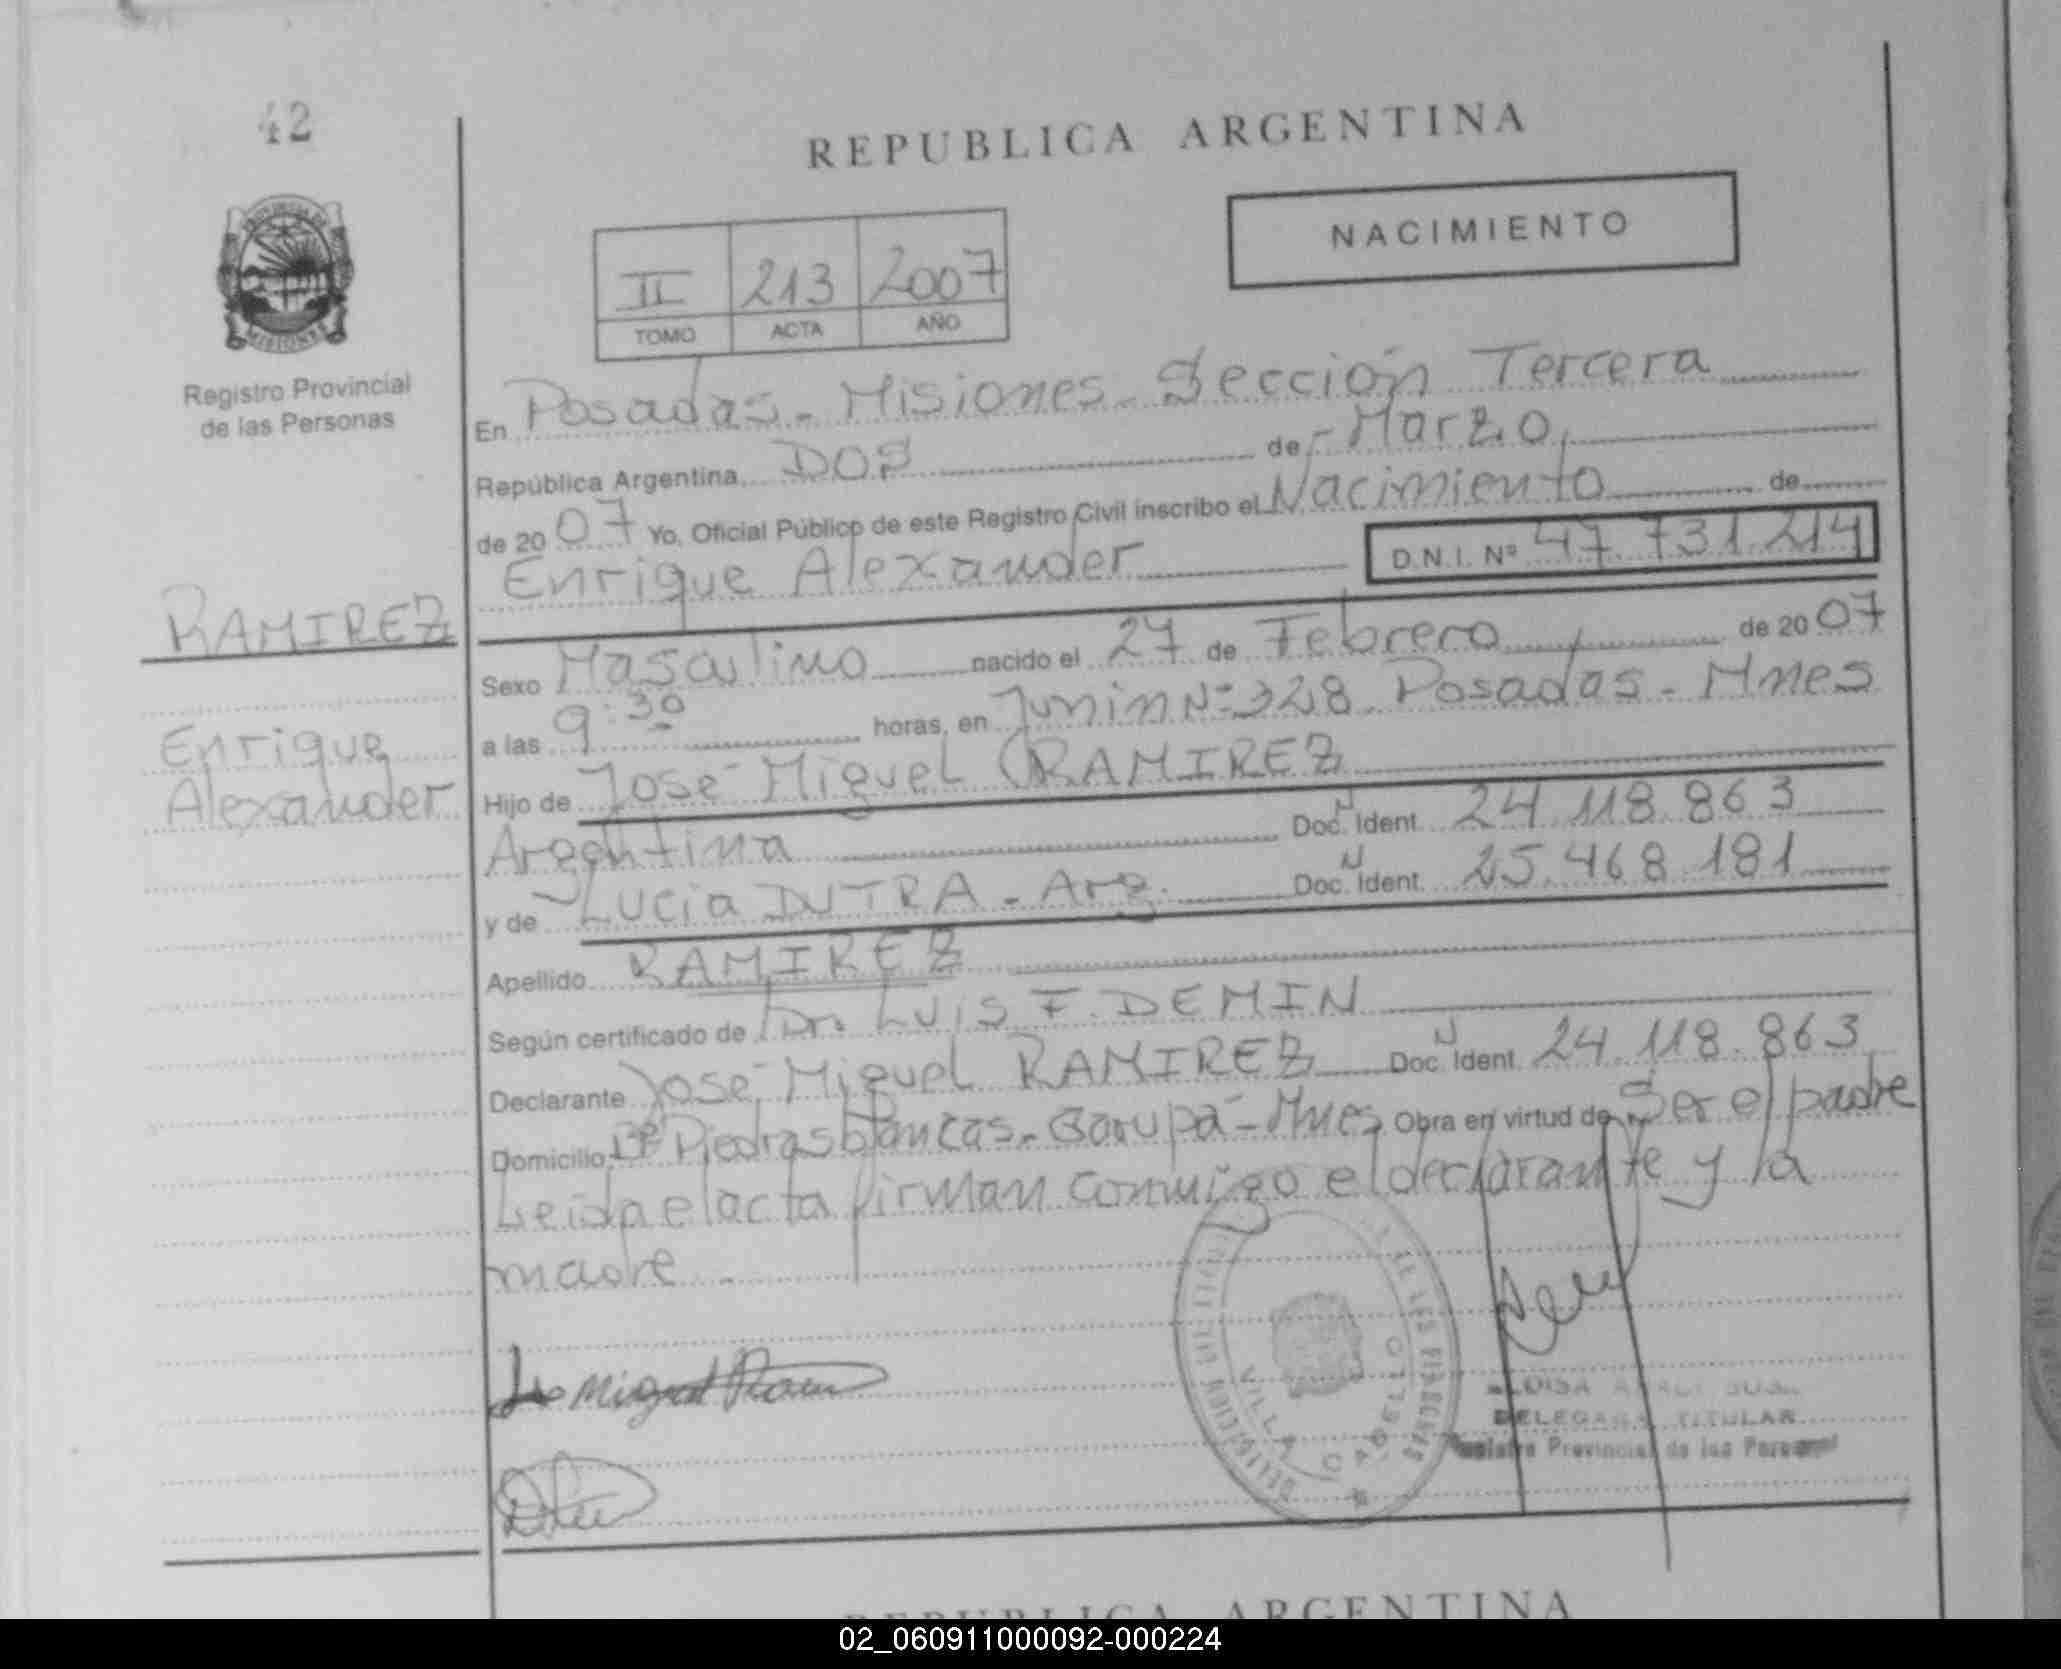 42
REPUBLICA ARGENTINA
NACIMIENTO
II 213 2007
TOMO ACTA AÑO
PROVINCIA DE
MISIONES
Registro Provincial
de las Personas
En Posadas - Misiones - Sección Tercera
República Argentina, DOS de Marzo
de 2007 Yo, Oficial Público de este Registro Civil inscribo el Nacimiento de
Enrique Alexander D.N.I. Nº 47.731.214
RAMIREZ
Sexo Masculino nacido el 27 de Febrero de 2007
a las 9:30 horas, en Junin Nº 328 Posadas - Mnes
Enrique
Alexander
Hijo de José Miguel RAMIREZ
Argentina Doc. N Ident. 24.118.863
y de Lucia DUTRA - Arg. Doc. N Ident. 25.468.181
Apellido RAMIREZ
Según certificado de Dr. LUIS F. DEMIN
Declarante José Miguel RAMIREZ Doc. N Ident. 24.118.863
Domicilio Bº Piedras blancas - Garupá - Mnes Obra en virtud de Ser el padre
Leida el acta firman conmigo el declarante y la
madre
VILLA CABELLO
DELEGADA TITULAR
Registro Provincial de las Personas
REPUBLICA ARGENTINA
02_060911000092-000224